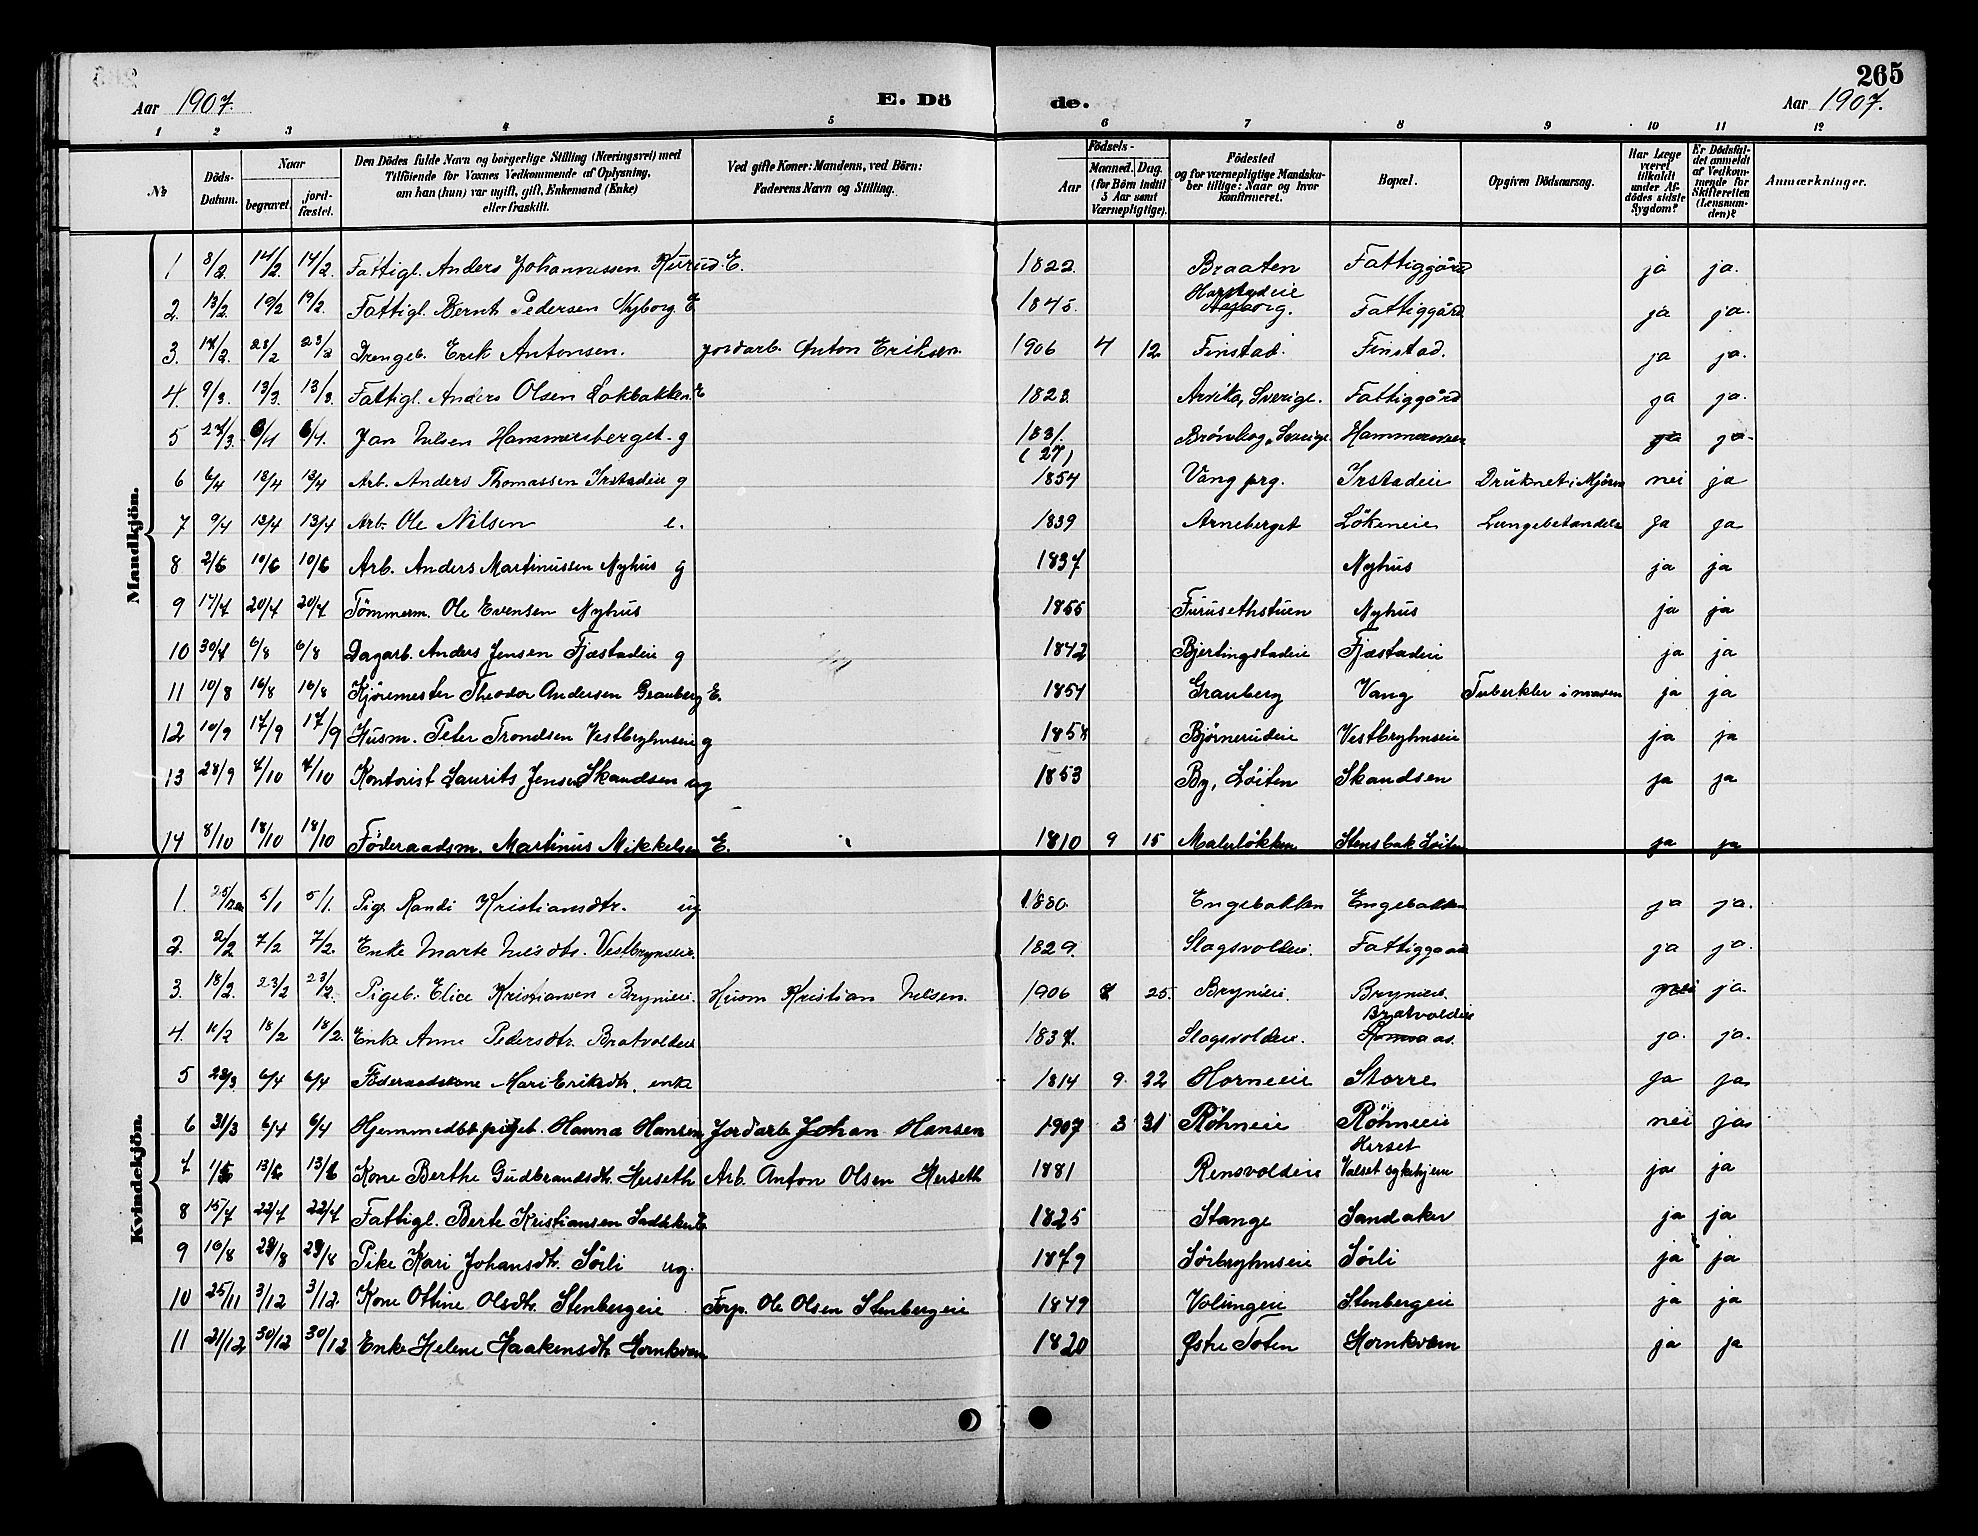 265
Aar 1907. E. Dö de. Aar 1907.
1 2 3 4 5 6 7 8 9 10 11 12
No
Döds-Datum.
Naar
begravet.
jord-fæstet.
Den Dödes fulde Navn og borgerlige Stilling (Næringsvei) med
Tilföiende for Voxnes Vedkommende af Oplysning,
om han (hun) var ugift, gift, Enkemand (Enke)
eller fraskilt.
Ved gifte Koner: Mandens, ved Börn:
Faderens Navn og Stilling.
Födsels-
Aar
Maaned. Dag.
(for Börn indtil
5 Aar samt
Værnepligtige).
Födested
og for værnepligtige Mandska-
ber tillige: Naar og hvor
konfirmeret.
Bopæl.
Opgiven Dödsaarsag.
Har Læge
været
tilkaldt
under Af-
dödes sidste
Sygdom?
Er Dödsfal-
det anmeldt
af Vedkom-
mende for
Skifteretten
(Lensman-
den)?
Anmærkninger.
Mandkjön.
1 8/2 14/2 14/2. Fattigl. Anders Johannessen Kurud E. 1822. Braaten Fattiggård ja ja.
2. 13/2 19/2 19/2. Fattigl. Bernt Pedersen Nyborg E 1845. Harstadeie Nyborg. Fattiggård ja ja.
3. 23/2 23/2 Drengeb. Erik Antonsen. Jordarb. Anton Eriksen. 1906 4 12 Finstad. Finstad. ja ja.
4. 9/3. 13/3. 13/3. Fattigl. Anders Olsen Lokbakken E 1823. Arvika, Sverige. Fattiggård ja ja.
5 27/3. 6/4 6/4. Jan Nilsen Hammersberget. g 1831. (27) Sverige ja ja.
6 6/4 13/4 13/4 Arb. Anders Thomassen Irstadeie g 1854 Vang prg. Irstadeie Druknet i Mjösen nei ja
7 9/4 13/4 13/4 Arb. Ole Nilsen e. 1839 Arneberget Lökeneie Lungebetændelse ja ja
8 2/6 10/6 10/6 Arb. Anders Martinussen Nyhus g 1837 Nyhus ja ja
9 17/7 20/7 20/7 Tömmerm. Ole Evensen Nyhus 1855 Furusethstuen Nyhus ja ja
10 30/7 6/8 6/8 Dagarb. Anders Jensen Fjæstadeie g 1842 Bjertingstadeie Fjæstadeie ja ja
11 10/8 16/8 16/8 Kjöremester Theodor Andersen Grauberg E. 1854 Grauberg Vang Tuberkler i maven ja ja
12 10/9 17/9 17/9 Husm. Peter Trondsen Vestbryhnseie g Björnerudeie Vestbryhnseie ja ja
13 28/9 4/10 4/10 Kontorist Laurits Jensen Skandsen ug 1853 By, Löiten Skandsen ja ja
14 8/10 18/10 18/10 Föderaadsm. Martinus Mikkelsen E. 1810 9 15 Malerlökken Stensbak Löiten ja ja
Kvindekjön.
1. 5/1 5/1. Pige Randi Kristiansdtr. ug 1880. Engebakken Engebakken ja ja.
2. 2/2 7/2 7/2. Enke Marte Nilsdtr. Vestbrynseie. 1829. Slagsvoldeie. Fattiggaard ja ja.
3. 18/2. 23/2 23/2. Pigeb. Elice Kristiansen Brynieie. Husm Kristian Nilsen. 1906 25. Brynieie. Brynieie. nei ja.
4. 18/2 18/2. Enke Anne Pedersdtr. Bratvoldeie 1837. Slagsvoldeie. Bratvoldeie ja. ja.
5 28/3 6/4 6/4 Föderaadskone Mari Eriksdtr. enke 1814 9. 22 Horneeie Storre ja ja
6 31/3 6/4 6/4 Hjemmedöbt pigeb. Hanna Hansen Jordarb. Johan Hansen 1907 3 31 Röhneeie Röhneeie nei ja
7 13/6 13/6 Kone Berthe Gudbrandsdtr. Herseth Arb. Anton Olsen Herseth 1881 Rensvoldeie Herset Valset sykehjem ja ja
8 15/7 22/7 22/7 Fattigl. Berte Kristiansen 1825 Stange Sandaker ja ja
9 16/8 23/8 23/8 Pike Kari Johansdtr. Sörli ug. 1879 Sörbryhnseie Sörli ja ja
10 25/11 3/12 3/12. Kone Ottine Olsdtr. Stenbergeie Forp. Ole Olsen Stenbergeie 1849 Volungeie Stenbergeie ja ja
11 21/12 30/12 30/12 Enke Helene Haakensdtr. Hornkvæn 1820 Østre Toten Hornkværn ja ja